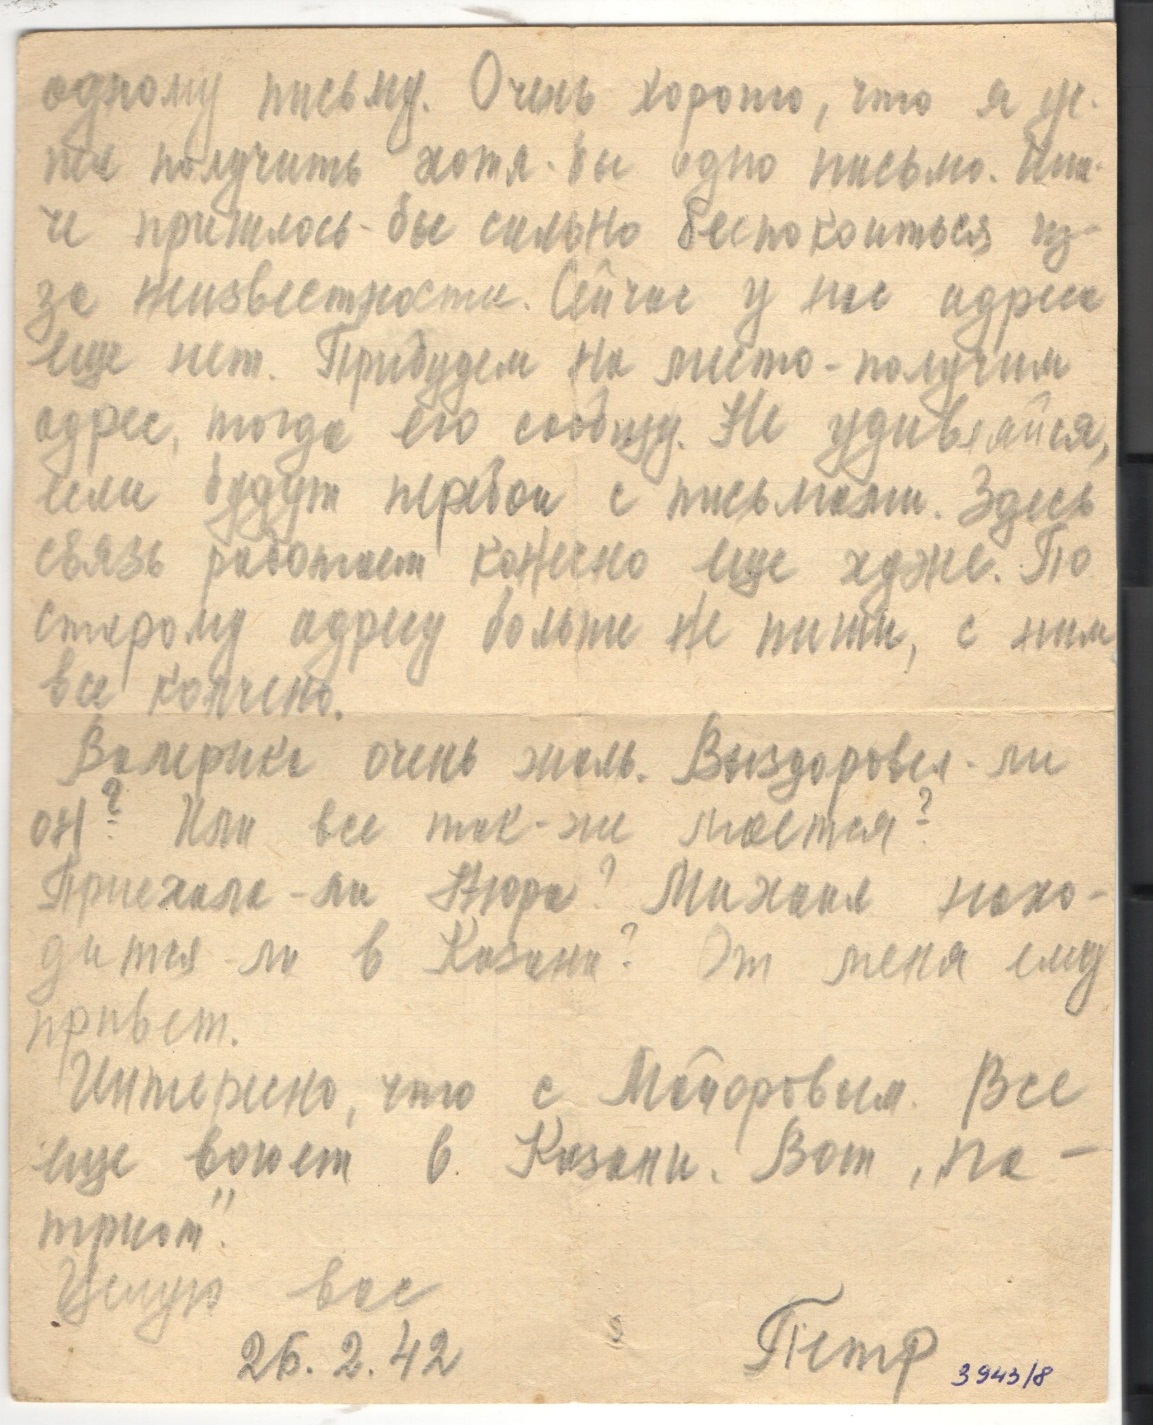 одному письму. Очень хорошо, что я ус-
пел получить хотя-бы одно письмо. Ина-
че пришлось-бы сильно беспокоиться из-
за неизвестности. Сейчас у нас адреса
еще нет. Прибудем на место - получим
адрес, тогда его сообщу. Не удивляйся,
если будут перебои с письмами. Здесь
связь работает конечно еще хуже. По
старому адресу больше не пиши, с ним
все кончено.
Валерика очень жаль. Выздоровел-ли
он? Или все так-же мается?
Приехала-ли Нюра? Михаил нахо-
дится-ли в Казани? От меня ему
привет.
Интересно, что с Майоровым. Все
еще воюет в Казани. Вот „па-
триот".
Целую вас
26.2.42 Петр
3943/8